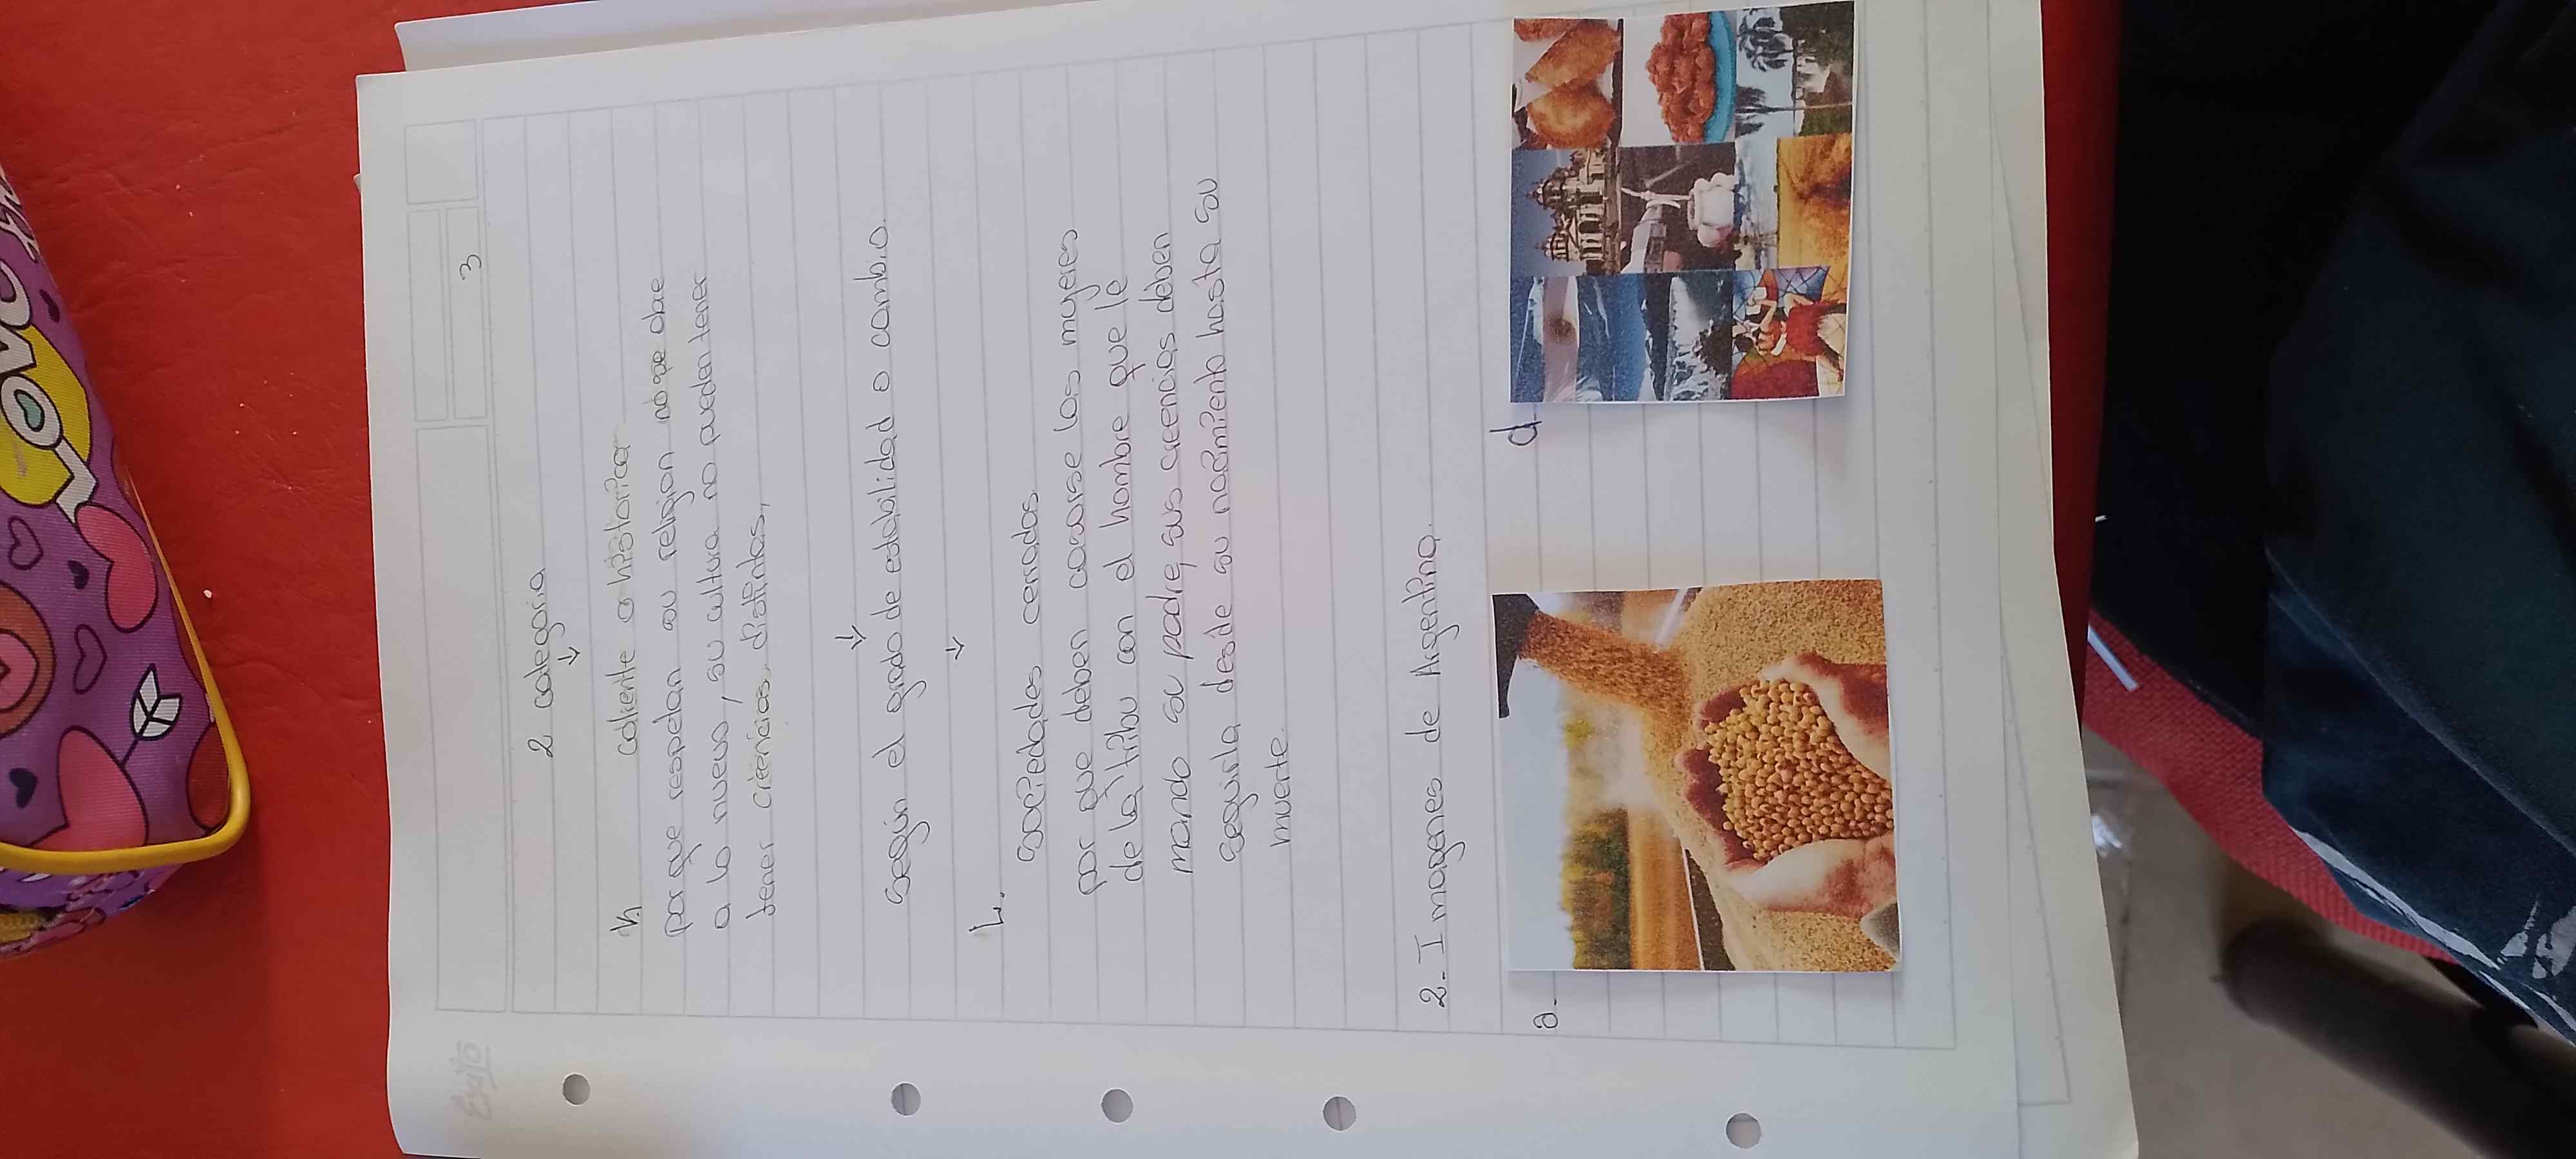 Éxito
3
2 categoria
h caliente o historica
por que respetan su religion no se abre
a lo nuevo, su cultura no pueden tener
tener creencias distintas,
según el grado de estabilidad o cambio.
L.
sociedades cerradas
por que deben casarse las mujeres
de la tribu con el hombre que le
mando su padre, sus creencias deben
seguirla desde su nacimiento hasta su
muerte.
2. Imagenes de Argentina.
a- d-
LOVE